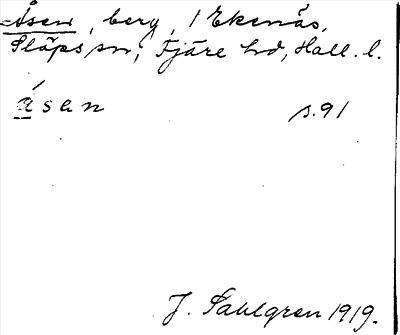 Åsen, berg, 1 Ekenäs,
Släps sn, Fjäre hd, Hall. l.
åsen s. 91
J. Sahlgren 1919.